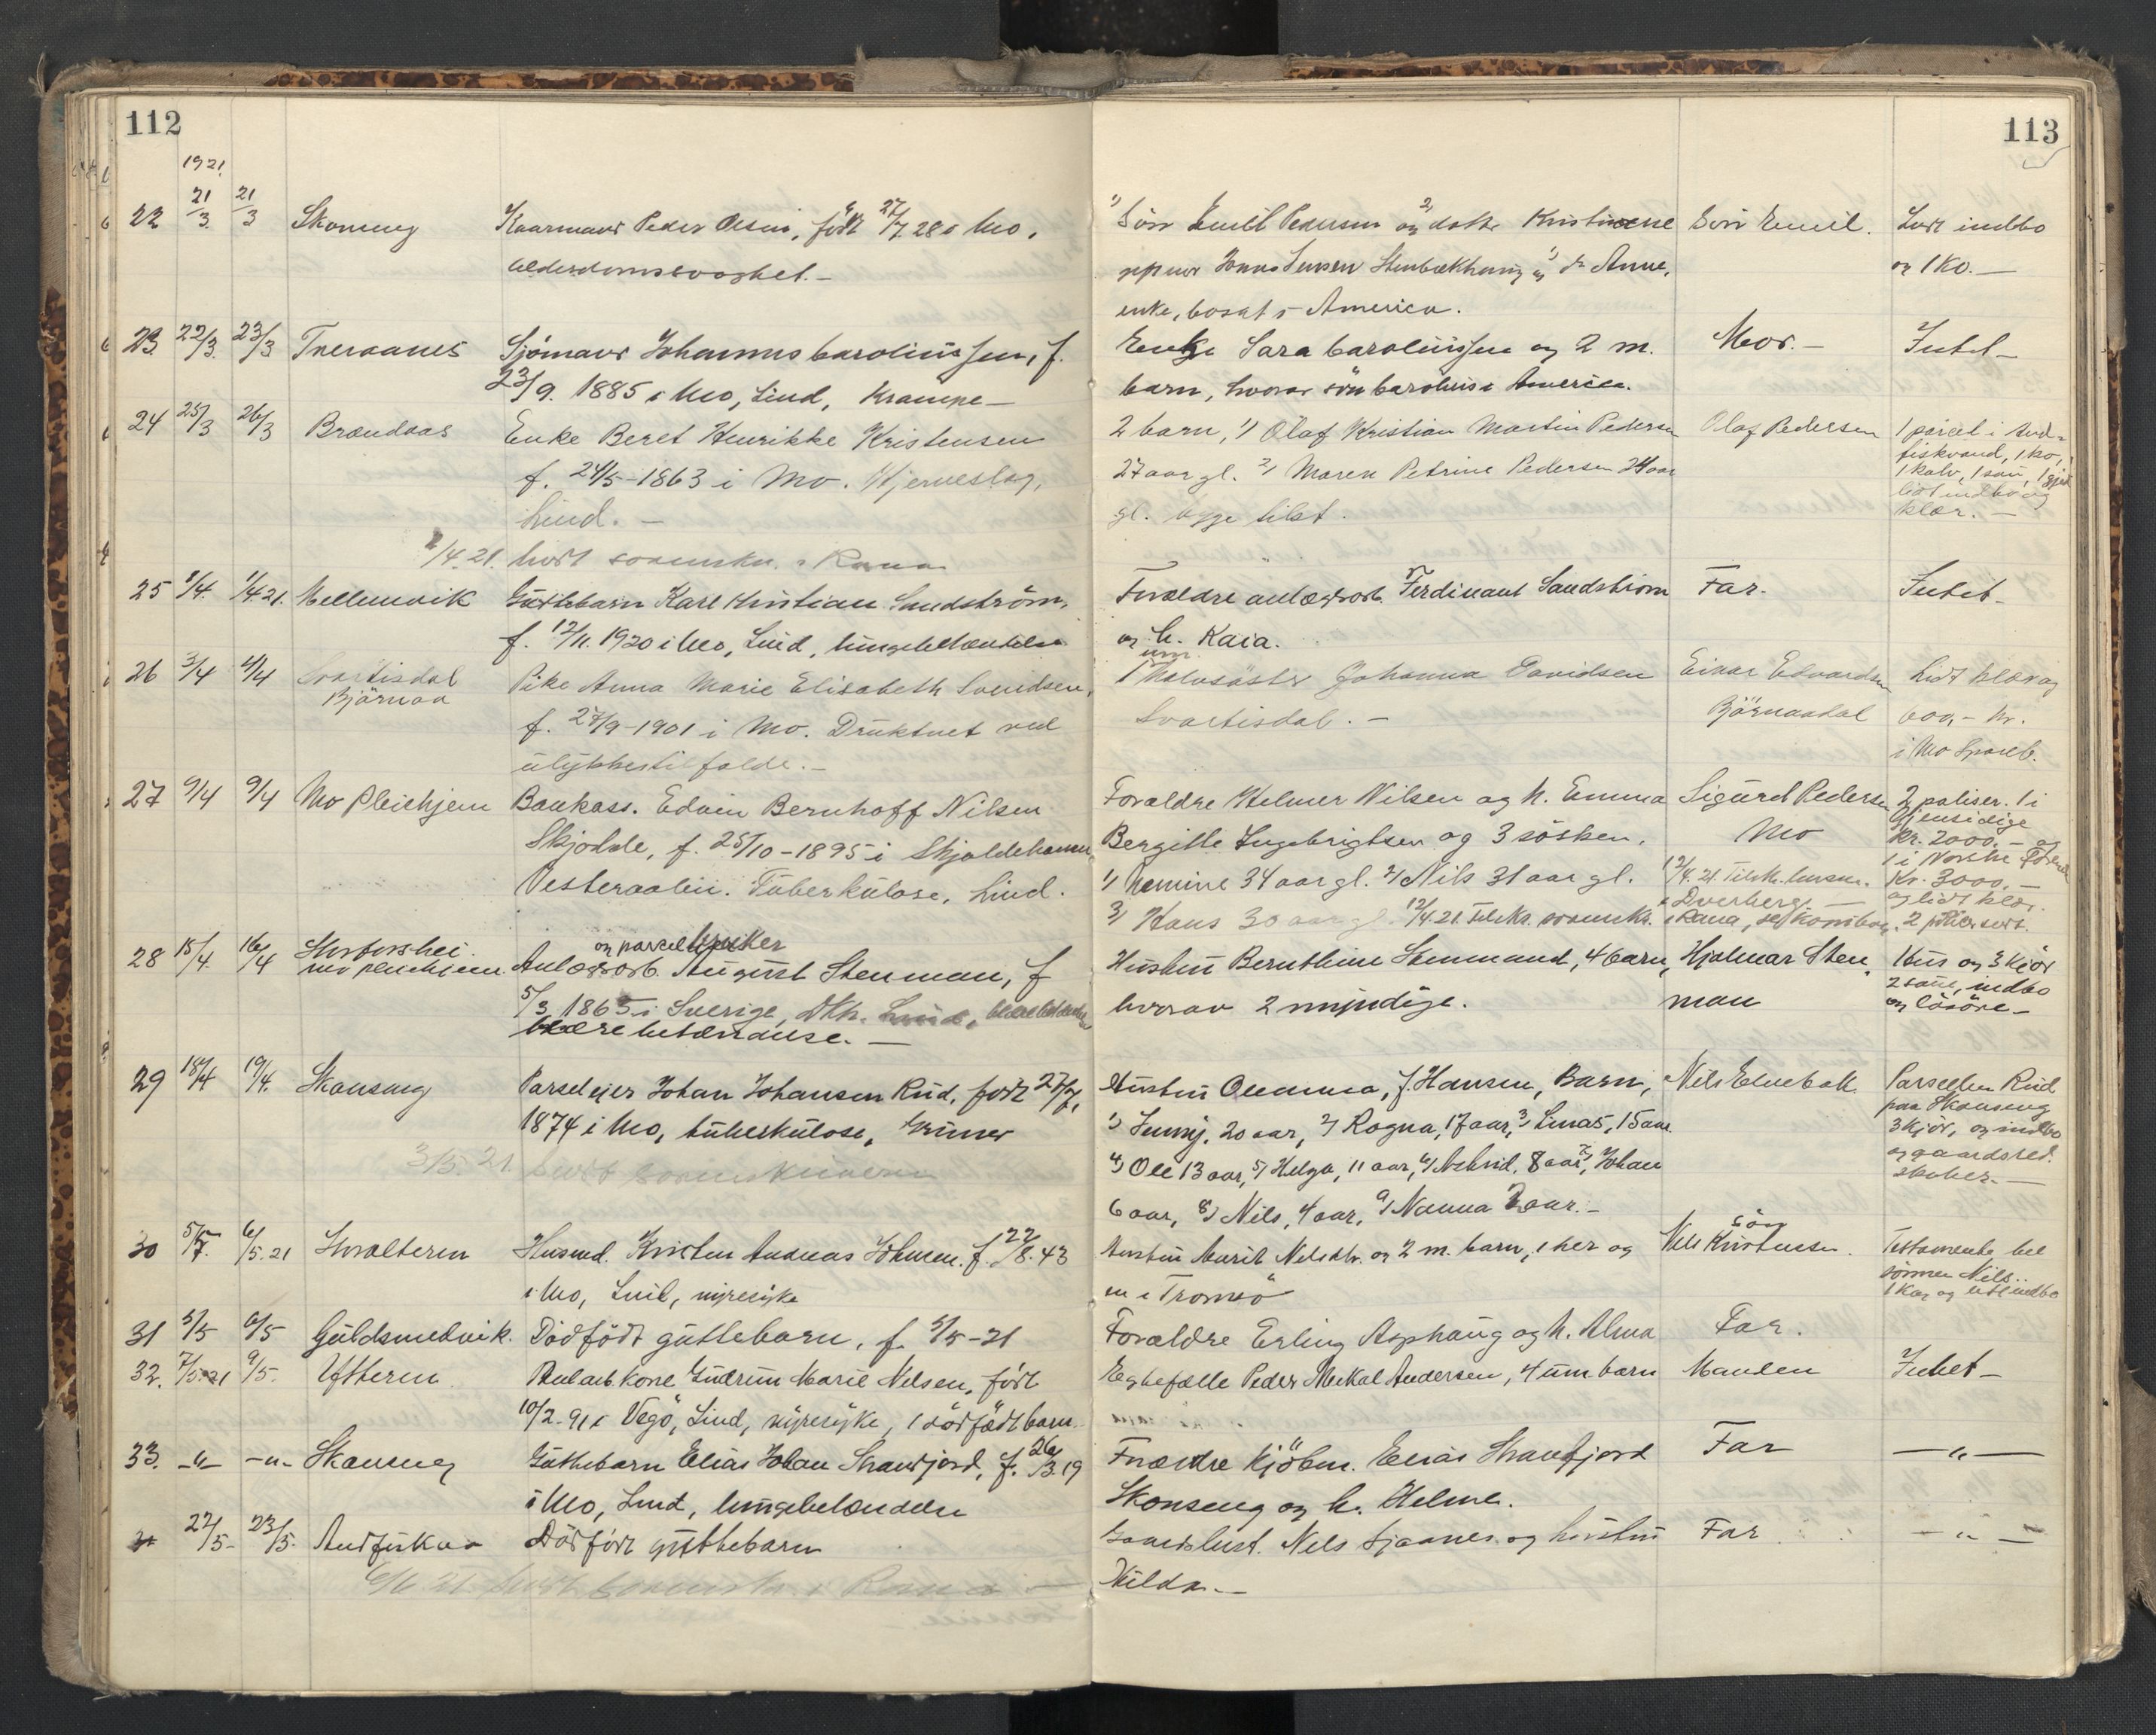 112
1921.
22 21/3 21/3 Skonseng Kaarmand Peder Olsen, født 27/7 28 i Mo,
alderdomssvaghet.—
23 22/3. 23/3 Tveraanes Sjömand Johannes Carolinssen, f.
23/9. 1885 i Mo, Lind, Krampe—
24 25/3 26/3 Brændaas Enke Beret Henrikke Kristensen
f. 24/5-1863 i Mo. Hjerneslag,
Lind. —
/4.21. hvort sorenskr. i Rana
25 1/4. 1/4.21. Mellemvik Guttebarn Karl Kristian Sandström,
f. 12/11. 1920 i Mo, Lind, lungebetændelse
26 3/4 4/4 Svartisdal
Bjärnaa
Pike Anna Marie Elisabeth Svendsen,
f. 27/9-1901 i Mo. Druktnet ved
ulykkestilfælde.—
27 9/4 9/4 Mo Pleiehjem Bankass. Edvin Bernhoff Nilsen
Skjolde, f. 25/10-1895 i Skjoldehamn
Vesteraalen. Tuberkulose, Lind.
28 15/4. 16/4 Storforshei
Mo pleiehjem.
og parcelbruker
Anlægsarb. August Stenman, f
5/3 1865 i Sverige,
blære betændelse. —
29 18/4 19/4. Skonseng Parseleier Johan Johansen Rud, født 27/7,
1874 i Mo, tuberkulose,
3/5.21
30 5/5. 6/5.21 Storalteren Husmd. Kristen Andreas Johnsen. f. 22/8.43
i Mo, Lind, nyresyke
31 5/5 6/5 Guldsmedvik. Dödfödt guttebarn, f. 5/5-21
32. 7/5.21 9/5. Ytteren Anl.arb. kone Gudrun Marie Nelsen, født
10/2-91 i Vegö, Lind, nyresyke, 1 dödfødt barn.
33. -"- -"- Skonseng Guttebarn Elias Johan Strandfjord, f. 26/3.19
i Mo, Lind, lungebetændelse
22/5- 23/5. Andfiskaa Dödfödt guttebarn
113
1) Sön Emil Pedersen og 2) datter Kristine
Jonas Jensen Stenbækhaug og 3) d. Anne,
enke, bosat i America.
Sön Emil.
Lidt indbo
og 1 ko.—
Enke Sara Carolinssen og 2 m.
barn, hvorav sön Carolius i America.
Mor.—
Intet—
2 barn, 1) Olaf Kristian Martin Pedersen
27 aar gl. 2) Maren Petrine Pedersen 24 aar
gl. begge tilst.
Olaf Pedersen
1 parcel i And-
fiskvand, 1 ko,
1 kalv, 1 sau, 1 gjet
lidt indbo og
klær.—
Forældre anlægsarb. Ferdinant Sandström
og h. Kaia.
Far.
Intet—
1 halvsöster Johanna Davidsen
Svartisdal.—
Einar Edvardsen
Bjärnaadal
Lidt klær og
600,- kr.
i Mo Spareb.
Forældre Helmer Nilsen og h. Emma
Bergitte Ingebrigtsen og 3 sösken.
1) Nemine 34 aar gl. 2) Nils 31 aar gl.
3) Hans 30 aar gl. 12/4.21. Tilskr. sorenskr. i Rana,
Sigurd Pedersen
Mo
12/4.21. Tilskr. lensm.
i Dverberg. —
2 poliser. 1 i
Gjensidige
Kr. 2000.— og
1 i Norske Forenede
Kr. 3000,—
og lidt klær.
Hustru Bernthine Stenmand, 4 barn,
hvorav 2 myndige.
Hjalmar Sten-
man
Hus og 3 kjör
2 sauer, indbo
og lösöre—
Hustru Oleanna, f. Hansen, Barn,
1) Jenny, 20 aar, 2) Ragna, 17 aar, 3) Linas, 15 aar
4) Ole 13 aar, 5) Helga, 11 aar, 6) Astrid, 8 aar, 7) Johan
6 aar, 8) Nils, 4 aar, 9) Nanna 2 aar.—
Nils Elvebak
Parsellen Rud
paa Skonseng
3 kjör, og indbo
og gaardsred.
skaber.—
Hustru Marit Nelsdtr. og 2 m. barn, 1 her og
en i Tromsö
sön
Nils Kristensen.
Testamente til
sönnen Nils.
1 ko, og lidt indbo
Forældre Erling Asphaug og h. Alma
Far.
Egtefælle Peder Mekal Andersen, 4 um. barn
Manden
Intet—
Forældre Kjöbm. Elias Strandfjord
Skonseng og h. Helma.
Far
—"—
Gaardbest. Nels Sjaanes og hustru
Hilda.—
Far
—"—